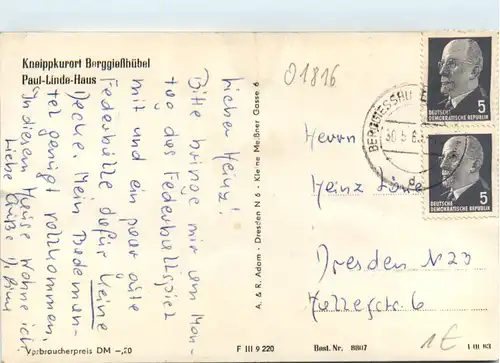 Kneippkurort Berggießhübel
Paul-Linde-Haus
Lieber Heinz!
Bitte bringe mir am Mon-
tag das Federballspiel
mit und ein paar gute
Federbälle dafür keine
Decke. Mein Bademan-
tel genügt vollkommen.
In diesem Hause wohne ich
Liebe Grüße
Verbraucherpreis DM –,20
A. & R. Adam · Dresden N 6 · Kleine Meißner Gasse 6
F III 9 220
Best. Nr. 8807
01816
BERGGIESSHÜ
30.5.6
d
5
DEUTSCHE
DEMOKRATISCHE REPUBLIK
5
DEUTSCHE
DEMOKRATISCHE REPUBLIK
Herrn
Heinz
Dresden N 23
str. 6
1€